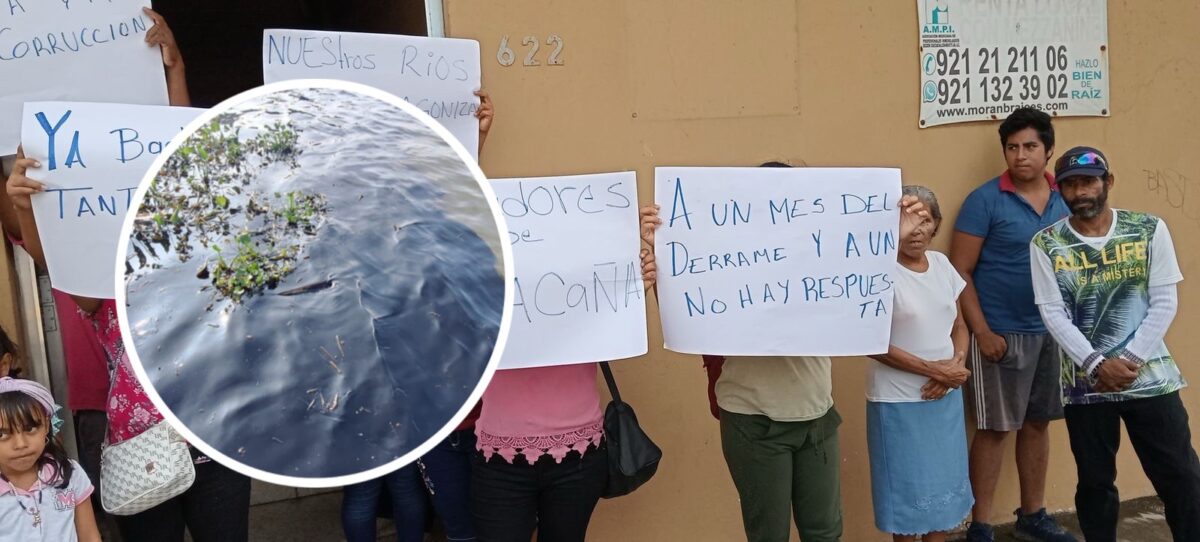 CORRUCCION
NUEStros Rios
AGONIZA
YA Ba
TANT
dores
de
ACAÑA
622
A UN MES DEL
DERRAME Y A UN
NO HAY RESPUES-
TA
A.M.P.I.
921 21 211 06
921 132 39 02
HAZLO
BIEN
DE
RAÍZ
www.moranbraices.com
ALL LIFE
IS A MISTERY